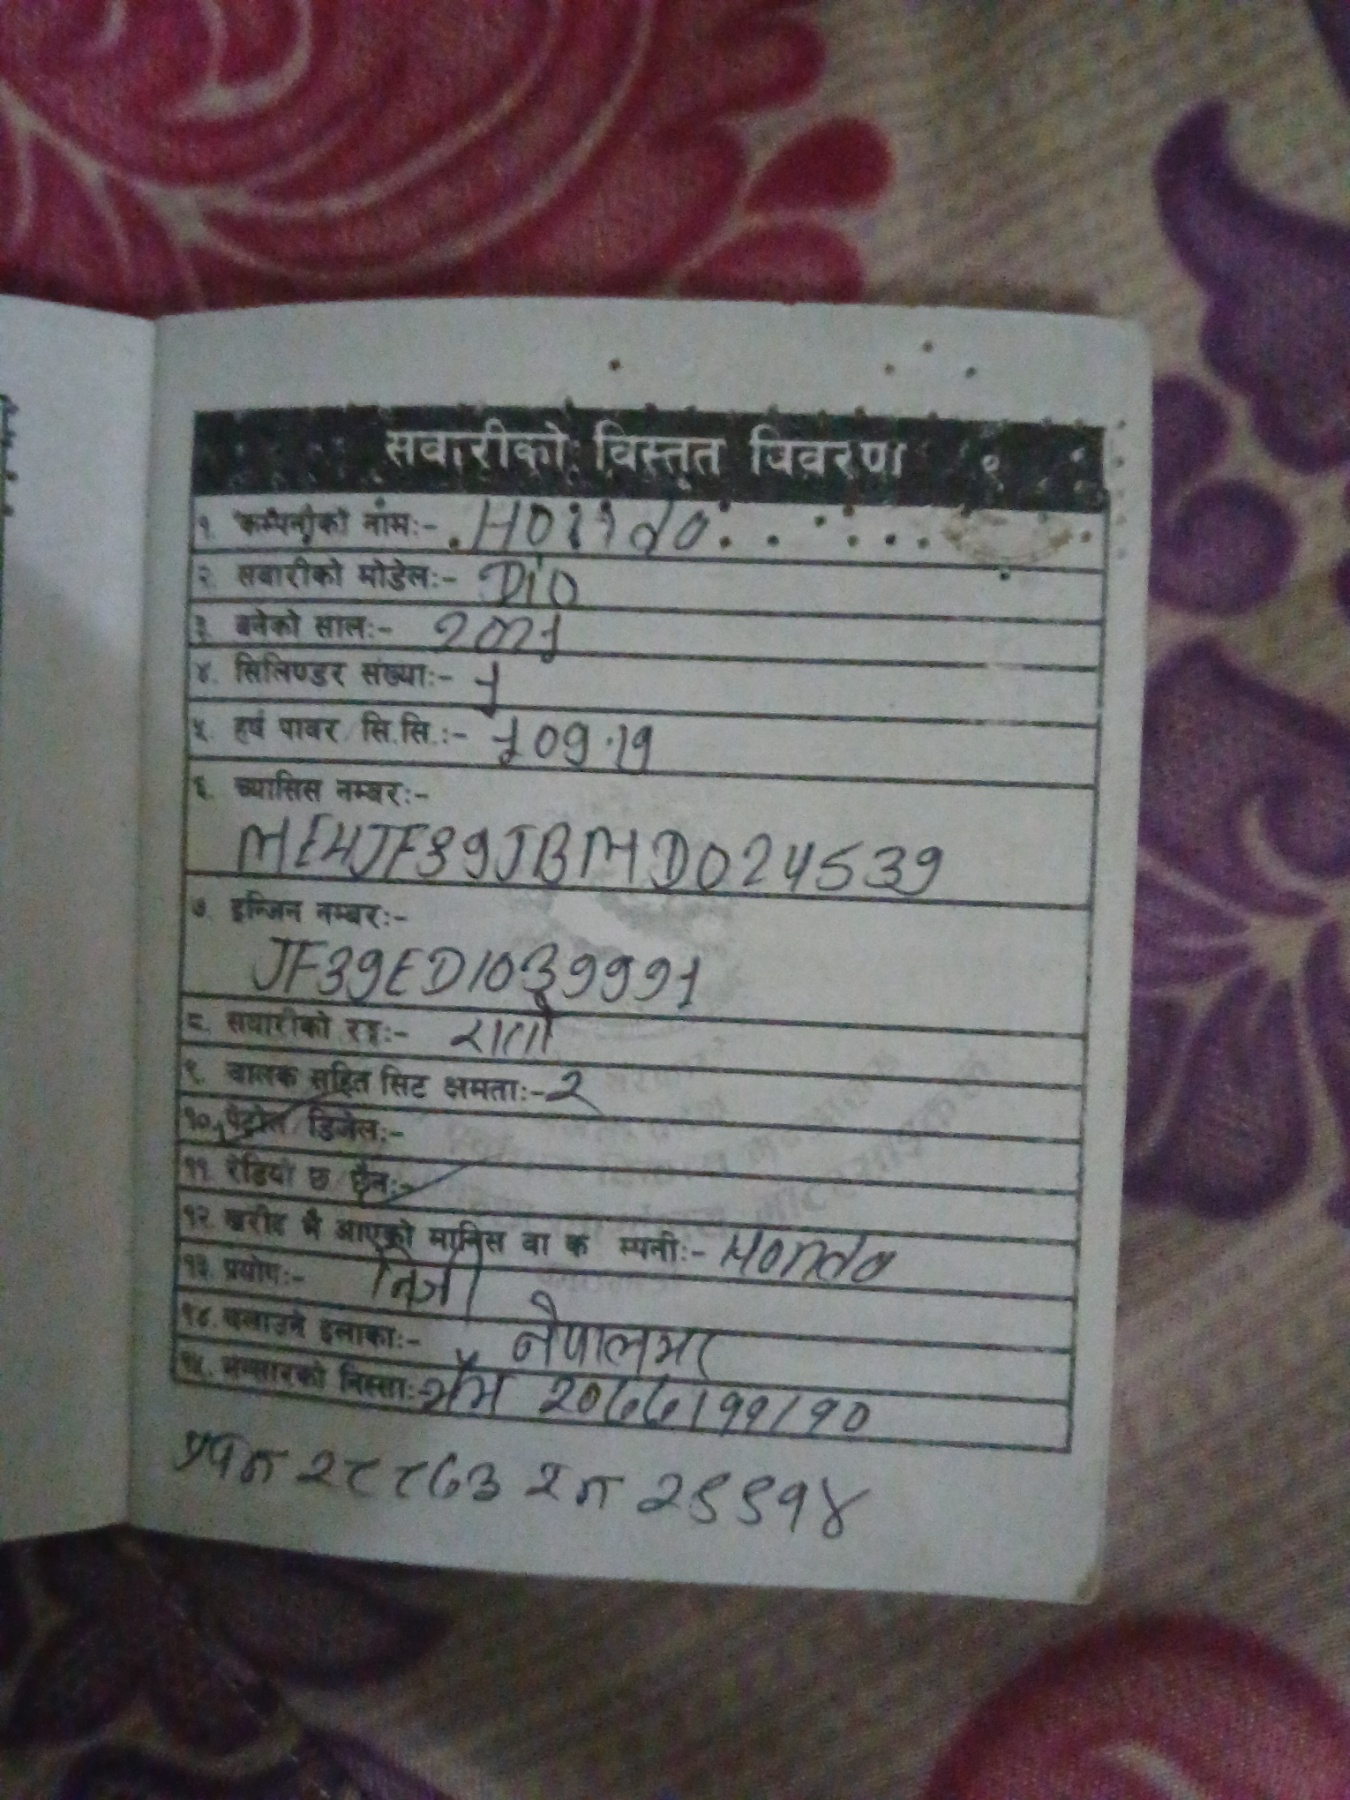 सवारीको विस्तृत विवरण
१. कम्पनीको नाम:- Honda
२. सवारीको मोडेल:- Dio
३. बनेको साल:- 2021
४. सिलिण्डर संख्या:- 1
५. हर्ष पावर/सि.सि.:- 109.19
६. च्यासिस नम्बर:-
ME4JF39JBMD024539
७. इन्जिन नम्बर:-
JF39ED1039991
८. सवारीको रङ्ग:- रातो
९. चालक सहित सिट क्षमता:- २
१०. पेट्रोल/डिजेल:-
११. रेडियो छ/छैन:-
१२. खरीद भै आएको मानिस वा क म्पनी:- Honda
१३. प्रयोग:- निजी
१४. चलाउने इलाका:- नेपालभर
१५. भन्सारको निस्सा:- २०७७/११/१०
प्रपन २८८७३ २न २९९१४